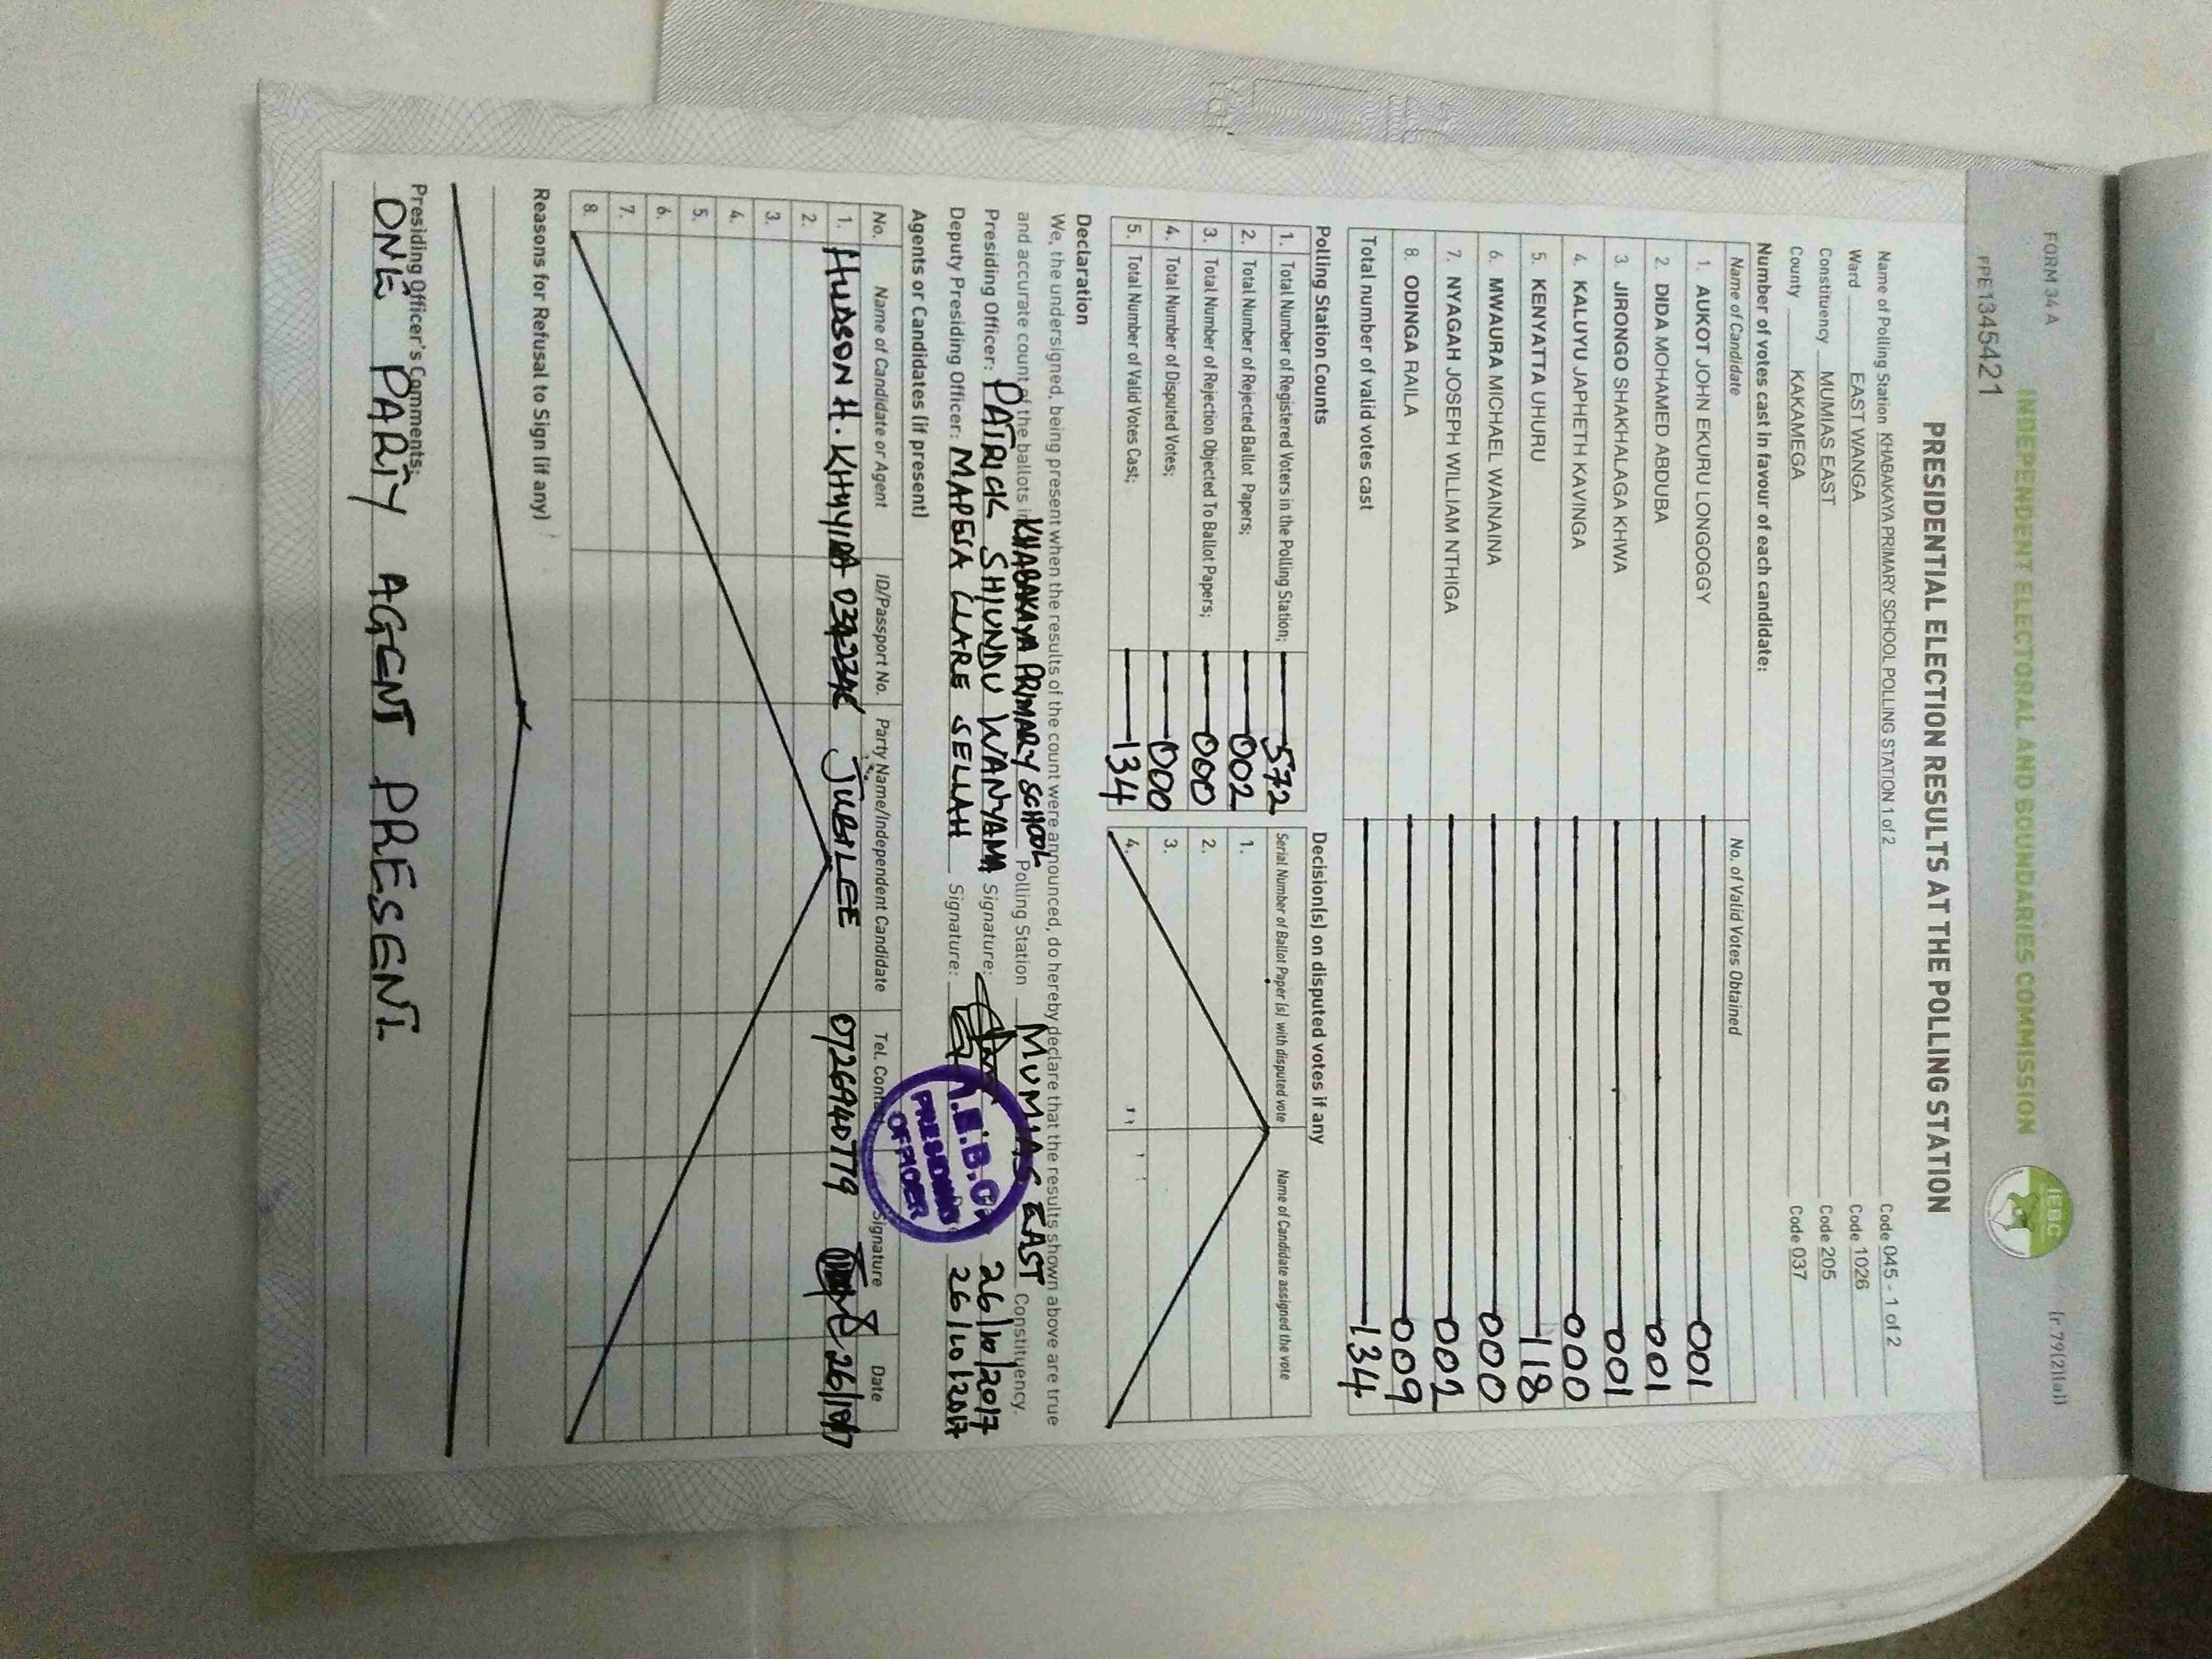 FORM 34A
(r.79(2)(a))
INDEPENDENT ELECTORAL AND BOUNDARIES COMMISSION
IEBC
FPE1345421
PRESIDENTIAL ELECTION RESULTS AT THE POLLING STATION
Name of Polling Station KHABAKAYA PRIMARY SCHOOL POLLING STATION 1 of 2 Code 045 - 1 of 2
Ward EAST WANGA Code 1026
Constituency MUMIAS EAST Code 205
County KAKAMEGA Code 037
Number of votes cast in favour of each candidate:
Name of Candidate No. of Valid Votes Obtained
1. AUKOT JOHN EKURU LONGOGGY 001
2. DIDA MOHAMED ABDUBA 001
3. JIRONGO SHAKHALAGA KHWA 001
4. KALUYU JAPHETH KAVINGA 000
5. KENYATTA UHURU 118
6. MWAURA MICHAEL WAINAINA 000
7. NYAGAH JOSEPH WILLIAM NTHIGA 002
8. ODINGA RAILA 009
Total number of valid votes cast 134
Polling Station Counts
1. Total Number of Registered Voters in the Polling Station; 572
2. Total Number of Rejected Ballot Papers; 002
3. Total Number of Rejection Objected To Ballot Papers; 000
4. Total Number of Disputed Votes; 000
5. Total Number of Valid Votes Cast; 134
Decision(s) on disputed votes if any
Serial Number of Ballot Paper (s) with disputed vote Name of Candidate assigned the vote
1.
2.
3.
4.
Declaration
We, the undersigned, being present when the results of the count were announced, do hereby declare that the results shown above are true
and accurate count of the ballots in KHABAKAYA PRIMARY SCHOOL Polling Station MUMIAS EAST Constituency.
Presiding Officer: PATRICK SHIUNDU WANYAMA Signature: 26/10/2017
Deputy Presiding Officer: MAPESA CLARE SELLAH Signature: 26/10/2017
I.E.B.C.
PRESIDING
OFFICER
Agents or Candidates (if present)
No. Name of Candidate or Agent ID/Passport No. Party Name/Independent Candidate Tel. Contact Signature Date
1. HUDSON H. JUBILEE
2.
3.
4.
5.
6.
7.
8.
Reasons for Refusal to Sign (if any)
Presiding Officer's Comments:
ONE PARTY AGENT PRESENT.